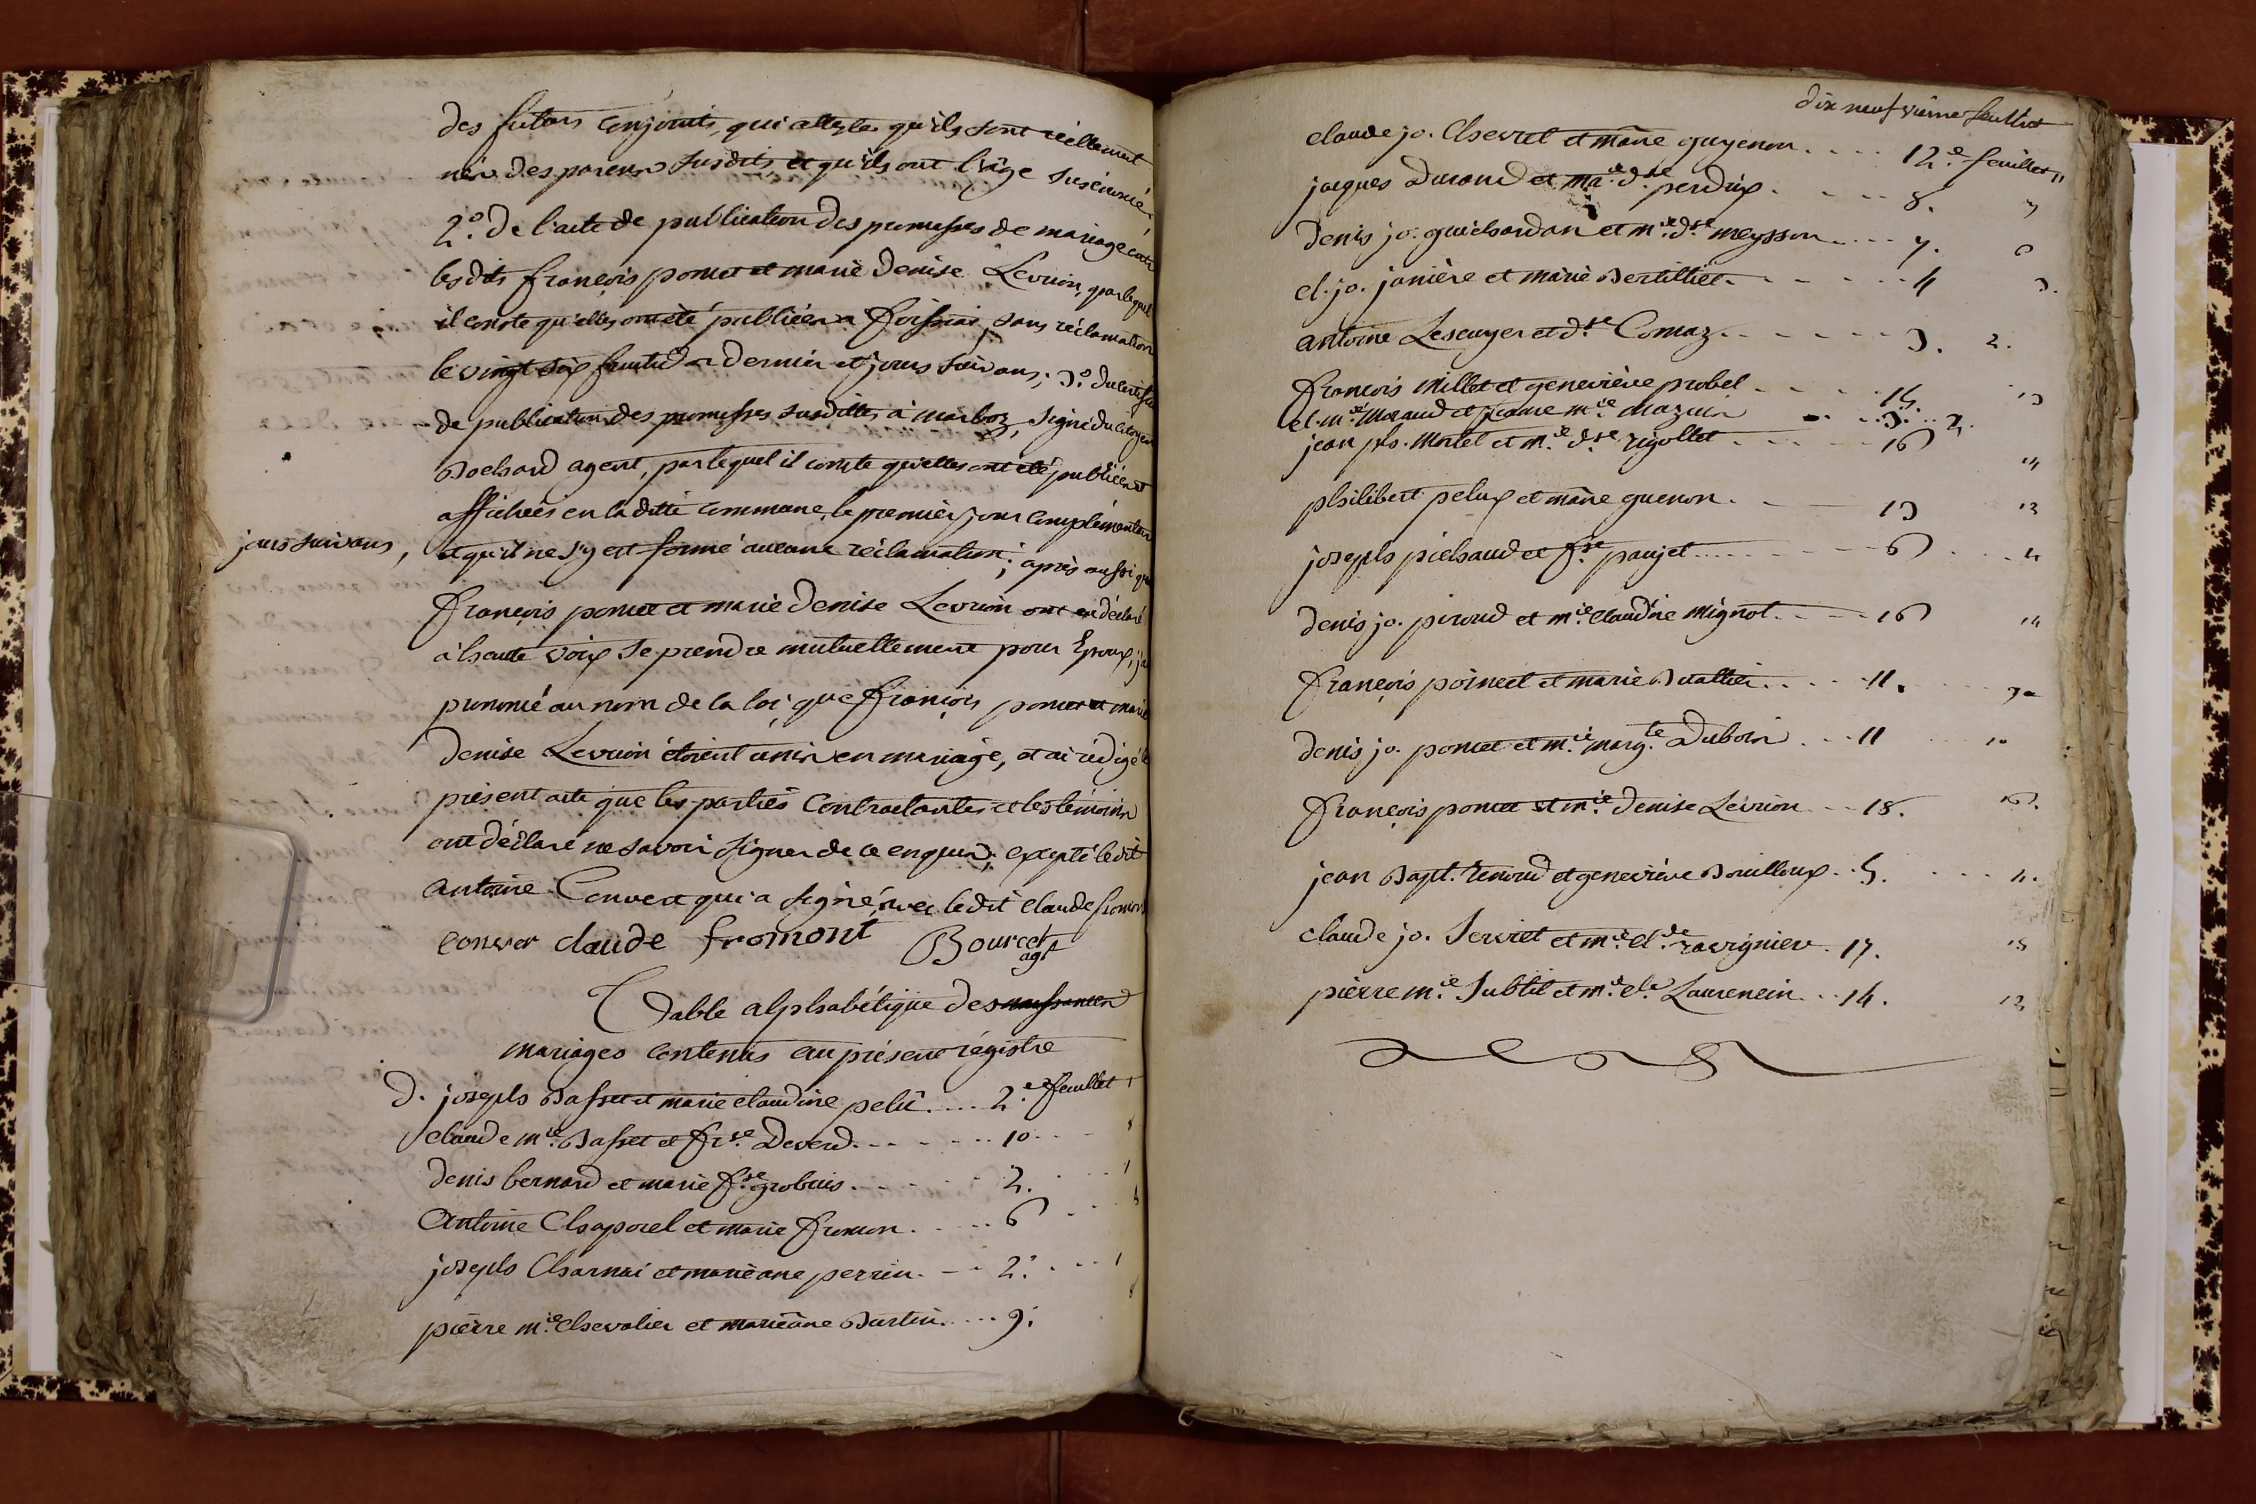 des futurs conjoints, qui atteste qu'ils sont réellement
nés des parens susdits et qu'ils ont l'âge susénoncé.
2.° De l'acte de publication des promesses de mariage entre
lesdits françois poncet et marie Denise Levrion, par lequel
il conste qu'elles ont été publiées a foissiai, sans réclamation
le vingt six fructidor dernier et jours suivans; 3.° du certificat
de publication des promesses susdittes à marboz, signé du citoyen
Bochard agent, par lequel il conste qu'elles ont été publiées et
affichées en laditte commune, le premier jour complémentaire
jours suivans,
et qu'il ne s'y est formé aucune réclamation; après aussi que
françois poncet et marie Denise Levrion ont eu déclaré
à haute voix se prendre mutuellement pour Epoux, j'ai
prononcé au nom de la loi que françois poncet et marie
Denise Levrion étoient unis en mariage, et ai rédigé le
présent acte que les parties contractantes et les témoins
ont déclaré ne savoir signer de ce enquis; excepté ledit
antoine Convert qui a signé avec ledit claude fromont
conver claude fromont Bourcet
agt
Table alphabétique des naissances
mariages contenus au présent régistre
D. joseph Basset et marie claudine pelü .... 2.e feuillet 1
claude m.ie Basset et fr.se Deverd ........ 10 ...
denis bernard et marie f.se grobuis ...... 2. ... 1
Antoine Chaporel et marie fromon ...... 6 ... 5
joseph Charnai et marieane perrin ... 2. ... 1
pierre m.ie Chevalier et marieane Burtin .... 9.
dix neuf vième feuillet
claude jo. Chevrel et marie guyenon .... 12.e feuillet 11
jacques Durand et ma.ie d.se perdrix ..... 8. 7
Denis jo. guichardan et m.ie d.se meysson .... 7. 6
cl. jo. janière et marie Bertillier ....... 4 3.
antoine Lescuyer et d.se Comaz ....... 3. 2.
françois Millet et geneviève probel .... 14. 13
cl. m.ie Moraud et jeanne m.ie Mazuir .... 3. .. 2.
jean ph. Morel et m.ie d.se rigollet ..... 16 14
philibert pelux et marie guenon ..... 13 12
joseph pichaud et f.se paujet ........ 6 ... 4
denis jo. piroud et m.ie claudine Mignot .... 16 14
françois poincet et marie Buathier .... 11. 10
denis jo. poncet et m.ie marg.te Dubois ... 11 10
françois poncet et m.ie denise Lévrion ... 18. 16.
jean Bapt. Renoud et geneviève Bouilloux .. 5. .... 4.
claude jo. Servet et m.ie cl.de ravignier . 17. 15
pierre m.ie Subtil et m.ie cl.e Laurencin .. 14. 12